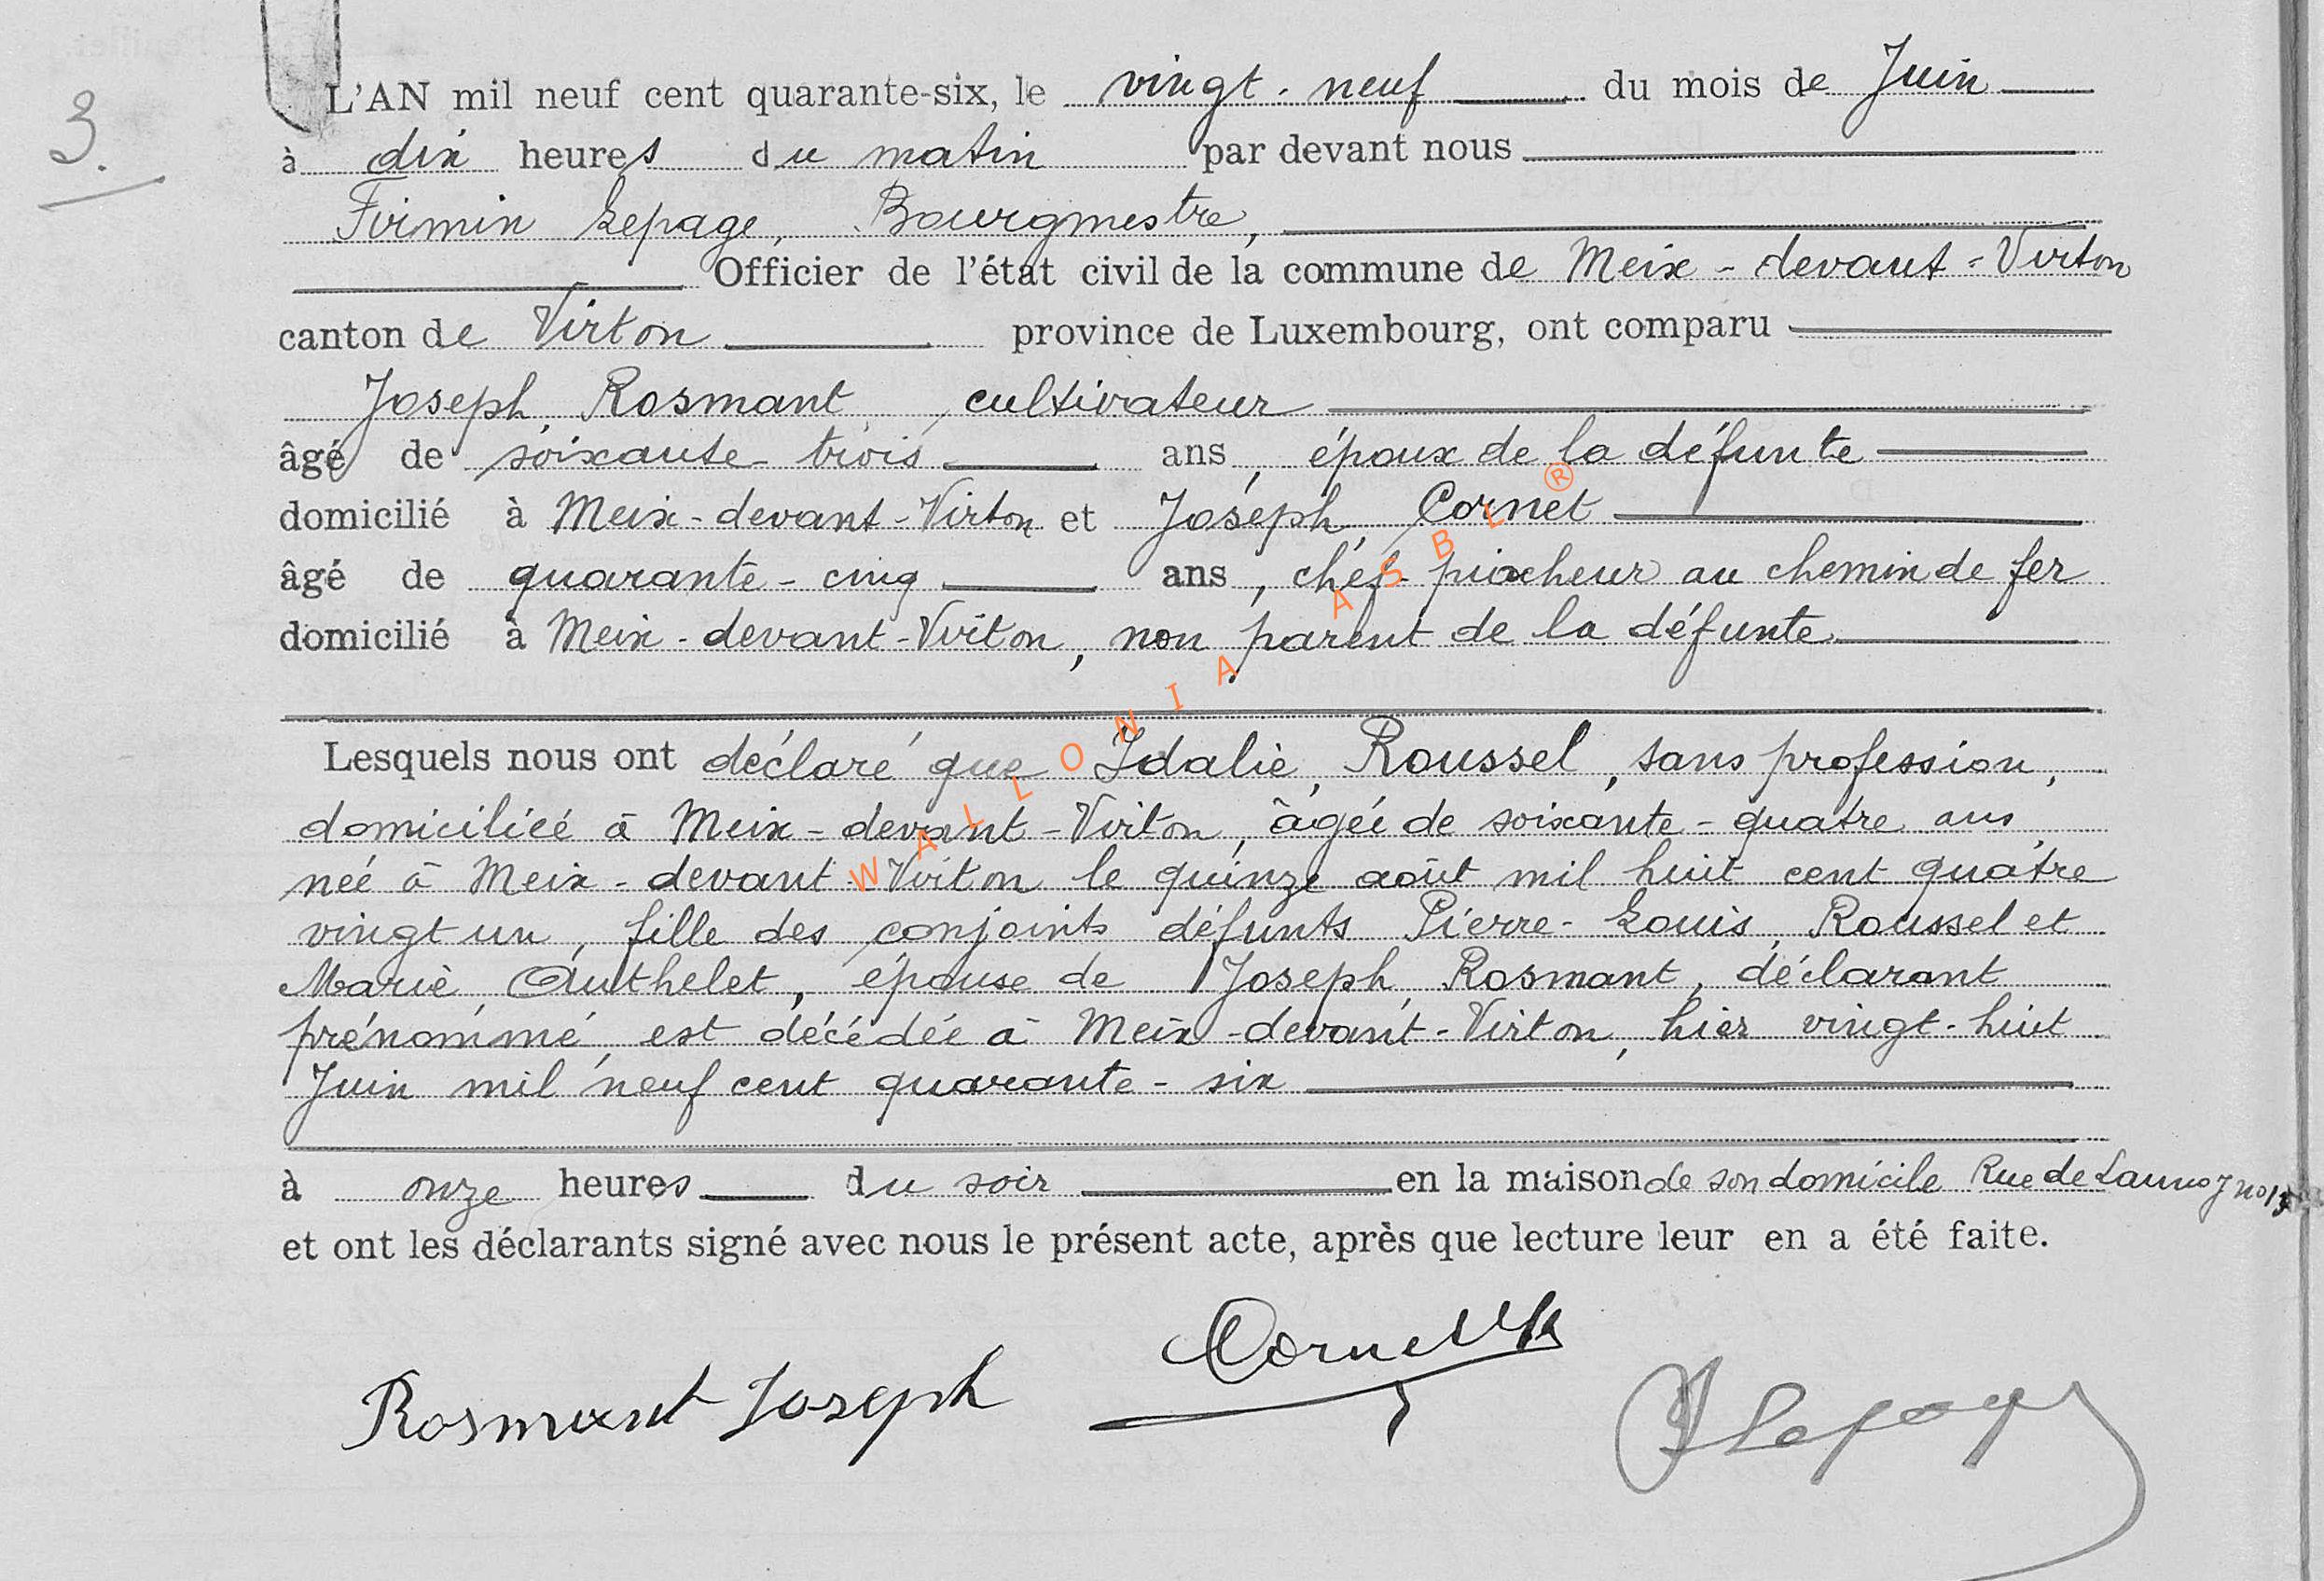 3.
L'AN mil neuf cent quarante-six, le vingt-neuf du mois de Juin
à dix heures du matin par devant nous
Firmin Lepage, Bourgmestre,
Officier de l'état civil de la commune de Meix-devant-Virton
canton de Virton province de Luxembourg, ont comparu
Joseph, Rosmant, cultivateur
âgé de soixante-trois ans, époux de la défunte
domicilié à Meix-devant-Virton et Joseph, Cornet
âgé de quarante-cinq ans, chef-piocheur au chemin de fer
domicilié à Meix-devant-Virton, non parent de la défunte
Lesquels nous ont déclaré que Idalie, Roussel, sans profession,
domiciliée à Meix-devant-Virton, âgée de soixante-quatre ans,
née à Meix-devant-Virton le quinze août mil huit cent quatre
vingt un, fille des conjoints défunts Pierre-Louis, Roussel et
Marie, Authelet, épouse de Joseph, Rosmant, déclarant
prénommé, est décédée à Meix-devant-Virton, hier vingt-huit
Juin mil neuf cent quarante-six
à onze heures du soir en la maison de son domicile Rue de Launoy
et ont les déclarants signé avec nous le présent acte, après que lecture leur en a été faite.
Rosmant Joseph
Cornet
Lepage
WALLONIA ASBL ®